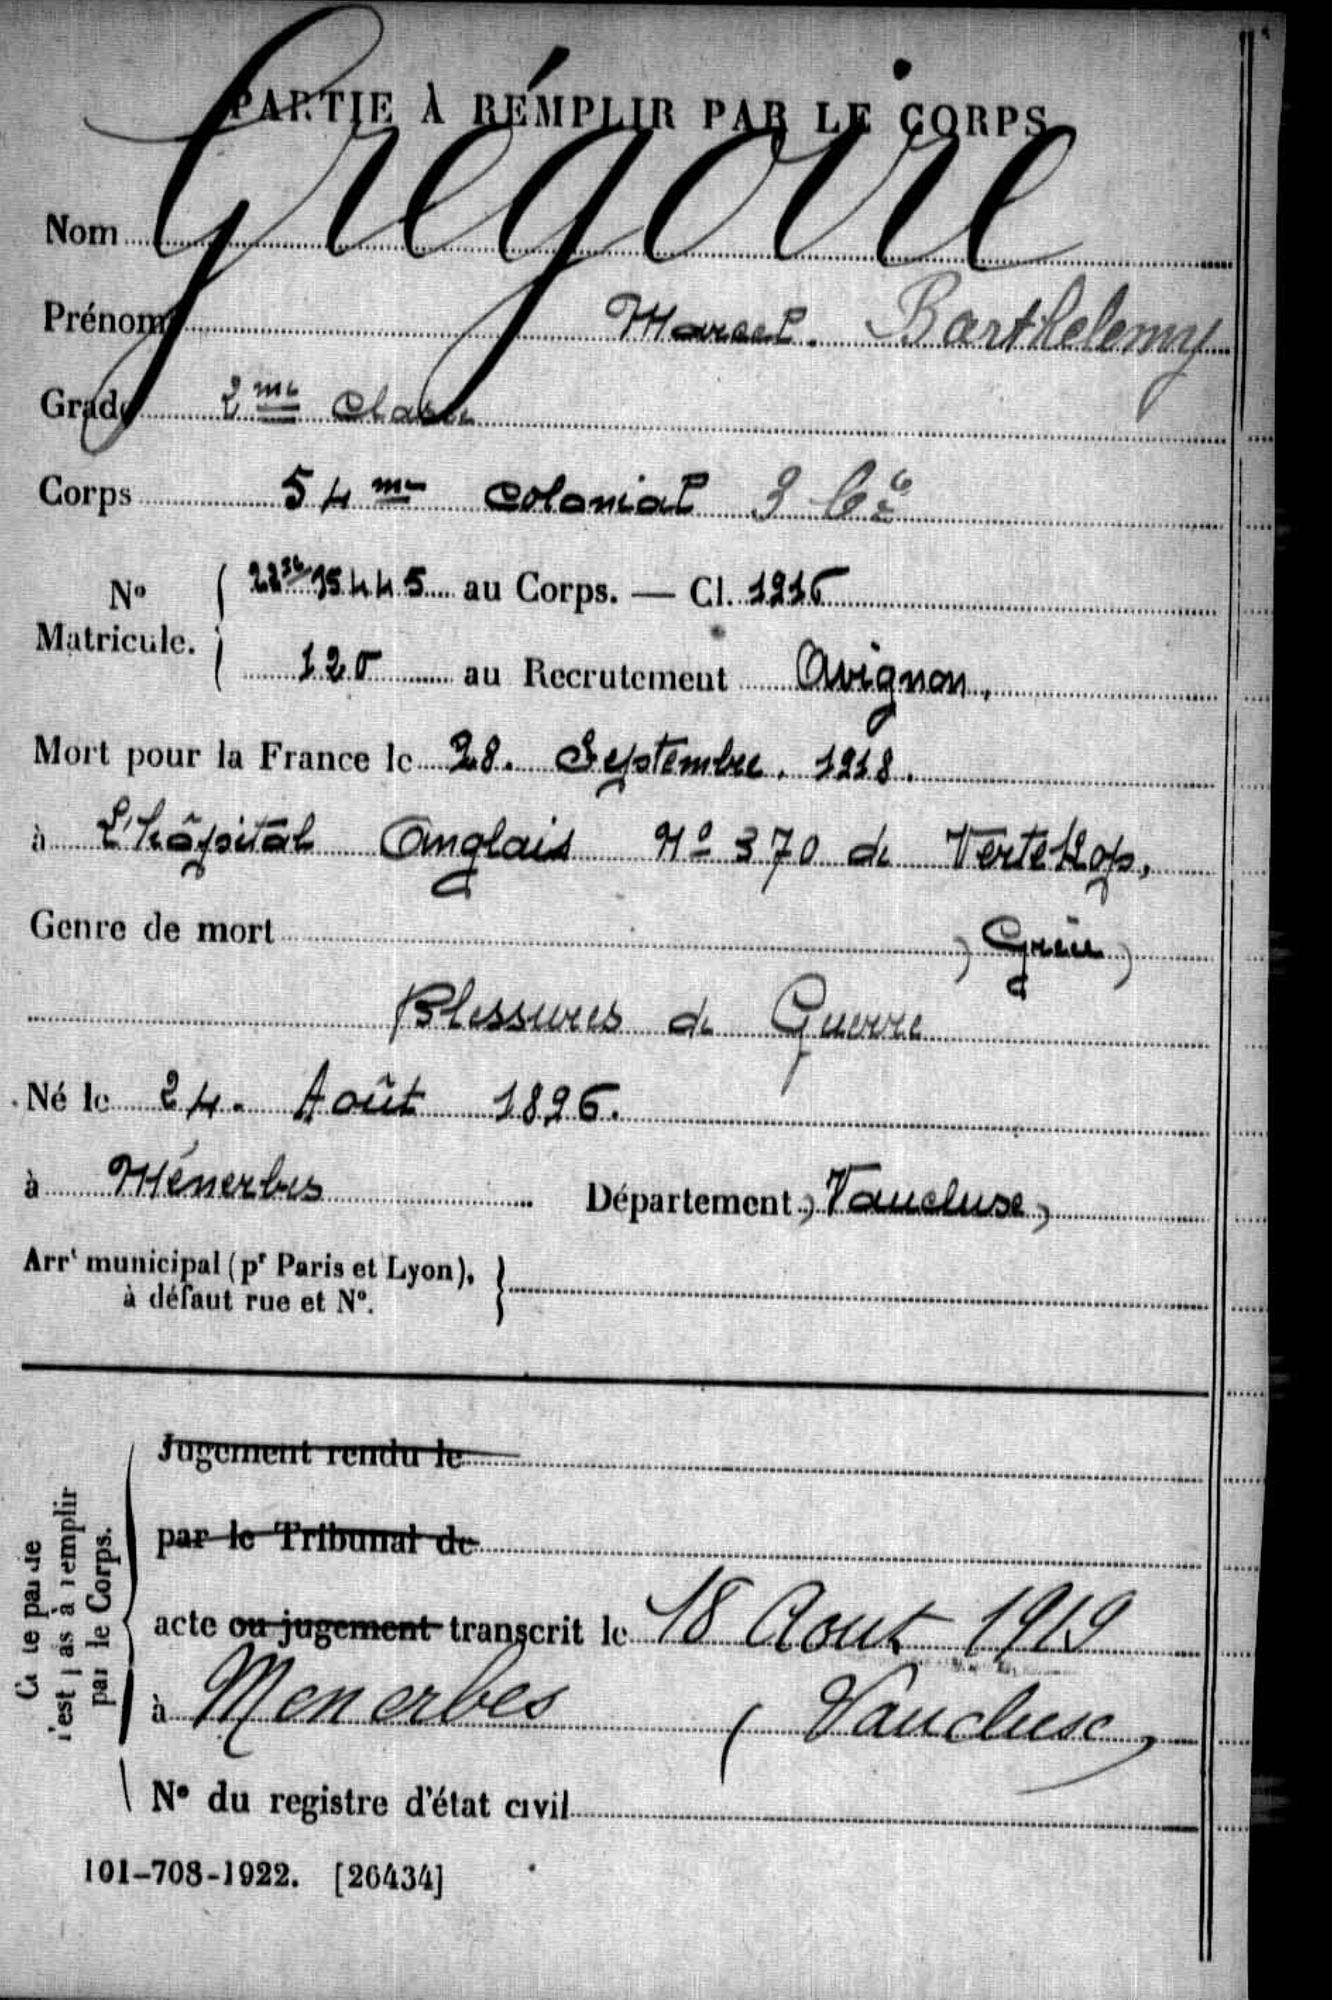 PARTIE À REMPLIR PAR LE CORPS
Nom Grégoire
Prénoms Marcel. Barthelemy
Grade 2me Classe
Corps 54me Colonial 3 Cie
No Matricule. 15445 au Corps. — Cl. 1916
120 au Recrutement Avignon.
Mort pour la France le 28. Septembre. 1918.
à L'hôpital Anglais No 370 de VerteKop,
Genre de mort (Grèce)
Blessures de Guerre
Né le 24. Août 1896.
à Ménerbes Département (Vaucluse)
Arrt municipal (pr Paris et Lyon),
à défaut rue et No.
Cette partie n'est pas à remplir par le Corps.
Jugement rendu le
par le Tribunal de
acte ou jugement transcrit le 18 Aout 1919
à Menerbes (Vaucluse)
No du registre d'état civil
101-708-1922. [26434]